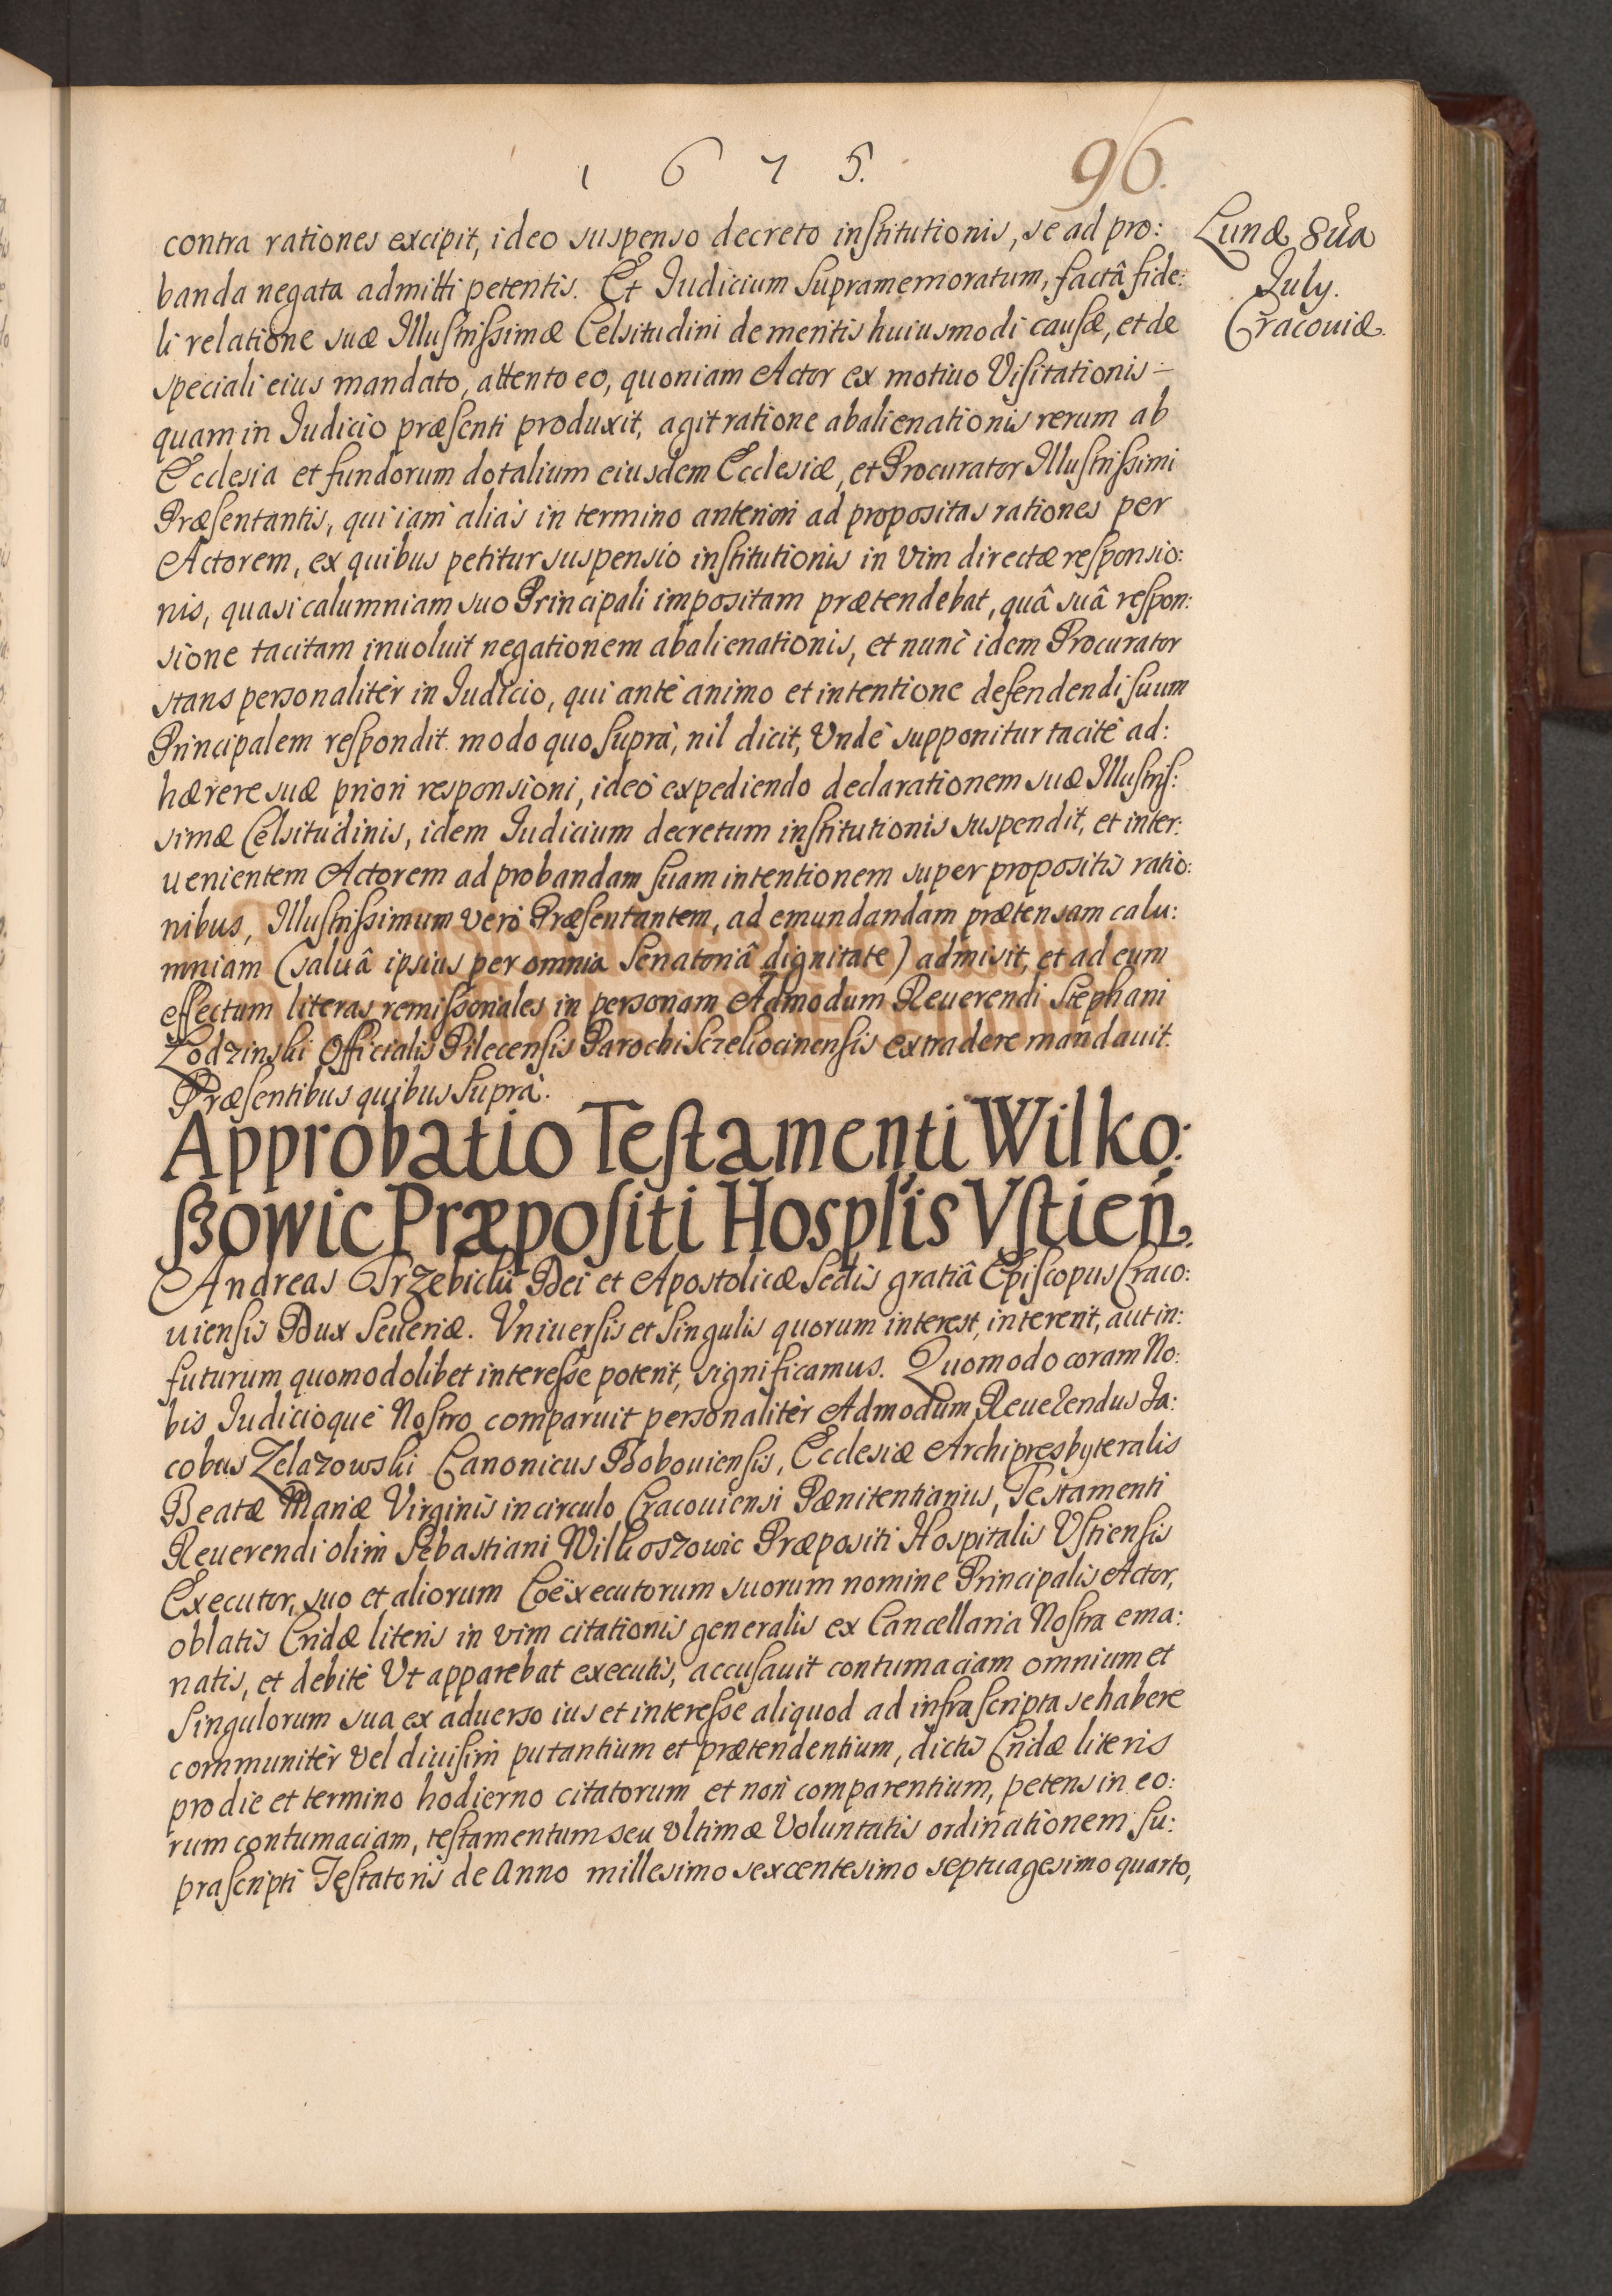 1675.
96.
Lunæ 8ua
July.
Cracouiæ.
contra rationes excipit, ideo suspenso decreto institutionis, se ad pro:
banda negata admitti petentis. Et Iudicium supramemoratum, factâ fide:
li relatione suæ Illustrissimæ Celsitudini de meritis huiusmodi causæ, et de
speciali eius mandato, attento eo, quoniam Actor ex motiuo Visitationis
quam in Iudicio præsenti produxit, agit ratione abalienationis rerum ab
Ecclesia et fundorum dotalium eiusdem Ecclesiæ, et Procurator Illustrissimi
Præsentantis, qui iam aliàs in termino anteriori ad propositas rationes per
Actorem, ex quibus petitur suspensio institutionis in vim directæ responsio:
nis, quasi calumniam suo Principali impositam prætendebat, quâ suâ respon:
sione tacitam inuoluit negationem abalienationis, et nunc idem Procurator
stans personalitèr in Iudicio, qui antè animo et intentione defendendi suum
Principalem respondit modo quo suprà, nil dicit, Undè supponitur tacitè ad:
hærere suæ priori responsioni, ideò expediendo declarationem suæ Illustris:
simæ Celsitudinis, idem Iudicium decretum institutionis suspendit, et inter:
uenientem Actorem ad probandam suam intentionem super propositis ratio:
nibus, Illustrissimum verò Præsentantem, ad emundandam prætensam calu:
mniam (saluâ ipsius per omnia Senatoriâ dignitate) admisit, et ad eum
effectum literas remissoriales in personam Admodum Reuerendi Stephani
Zodzinski Officialis Pilecensis Parochi Szreliocinensis extradere mandauit.
Præsentibus quibus suprà.
Approbatio Testamenti Wilko:
szowic Præpositi Hosplis Vstien.
Andreas Trzebicki Dei et Apostolicæ Sedis gratiâ Episcopus Craco:
uiensis Dux Seueriæ. Vniuersis et Singulis quorum interest, intererit, aut in:
futurum quomodolibet interesse poterit, significamus. Quomodo coram No:
bis Iudicioque Nostro comparuit personalitèr Admodum Reuerendus Ja:
cobus Zelazowski Canonicus Bobouiensis, Ecclesiæ Archipresbyteralis
Beatæ Mariæ Virginis in circulo Cracouiensi Pænitentiarius, Testamenti
Reuerendi olim Sebastiani Wilkoszowic Præpositi Hospitalis Ustiensis
Executor, suo et aliorum Coëxecutorum suorum nomine Principalis Actor,
oblatis Cridæ literis in vim citationis generalis ex Cancellaria Nostra ema:
natis, et debitè Ut apparebat executis, accusauit contumaciam omnium et
Singulorum sua ex aduerso ius et interesse aliquod ad infrascripta se habere
communitèr vel diuisim putantium et prætendentium, dictis Cridæ literis
pro die et termino hodierno citatorum et non comparentium, petens in eo:
rum contumaciam, testamentum seu Vltimæ Voluntatis ordinationem su:
prascripti Testatoris de Anno millesimo sexcentesimo septuagesimo quarto,